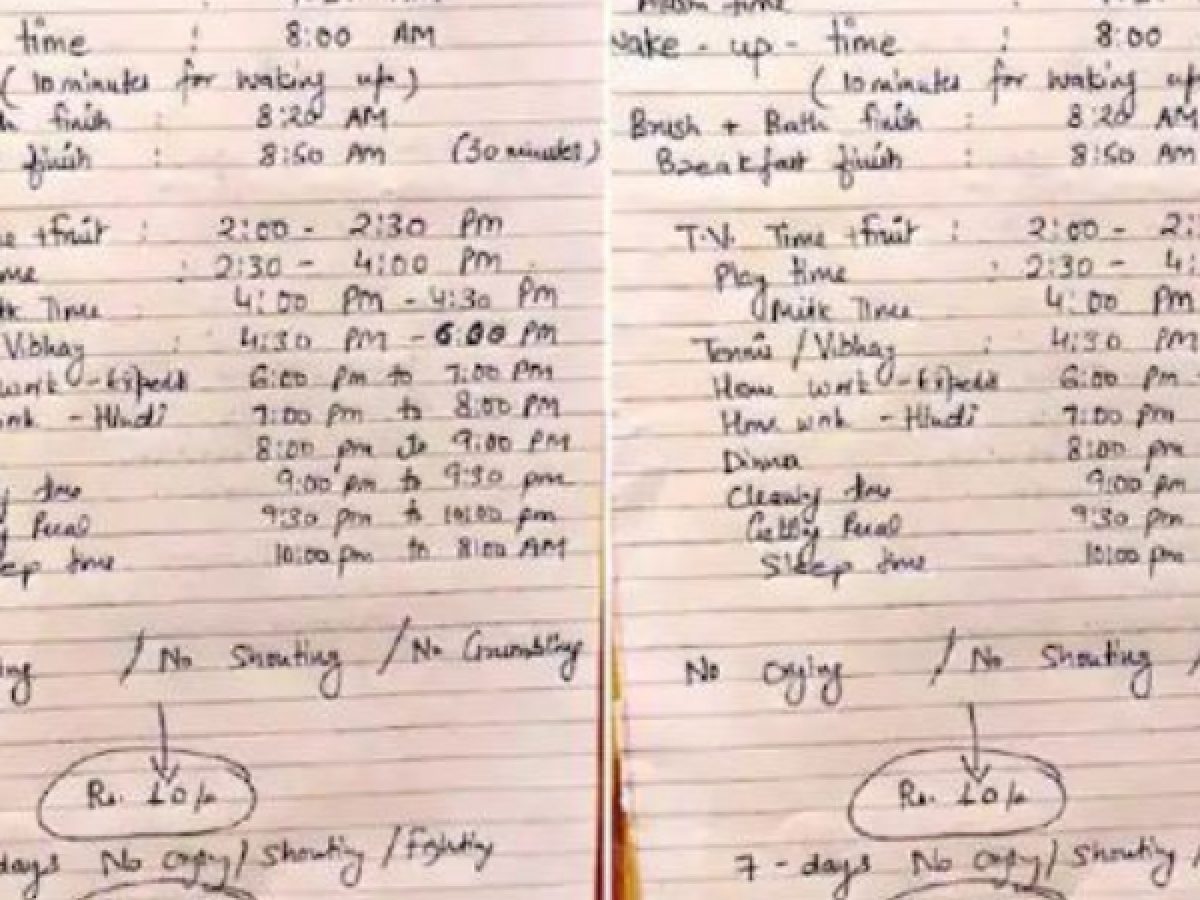 time : 8:00 AM
(10 minutes for waking up)
finish : 8:20 AM
finish : 8:50 AM (30 minutes)
+fruit : 2:00 - 2:30 PM
: 2:30 - 4:00 PM
Time 4:00 PM - 4:30 PM
Vibhag : 4:30 PM - 6:00 PM
work - 6:00 Pm to 7:00 PM
- Hindi 7:00 Pm to 8:00 PM
8:00 pm to 9:00 PM
time 9:00 pm to 9:30 pm
9:30 pm to 10:00 pm
time 10:00 pm to 8:00 AM
/ No Shouting / No Grumbling
Rs. 10/-
days No crying / Shouting / Fighting
time
wake - up - time : 8:00
(10 minutes for waking up
Brush + Bath finish : 8:20 AM
Breakfast finish : 8:50 AM
T.V. Time +fruit : 2:00 - 2:
Play time : 2:30 - 4:
Milk Time 4:00 PM
Tennis / Vibhag : 4:30 PM
Home work - 6:00 Pm
Home work - Hindi 7:00 Pm
Dinner 8:00 pm
Cleaning time 9:00 pm
9:30 pm
Sleep time 10:00 pm
No Crying / No Shouting /
Rs. 10/-
7 - days No crying / Shouting /